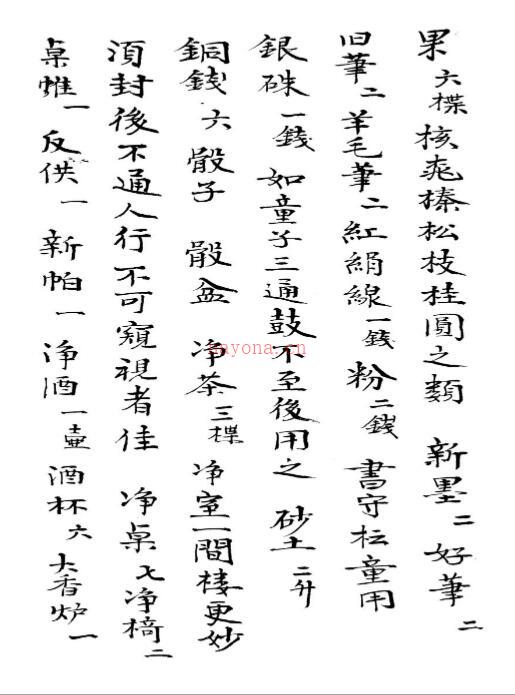 果六楪核桃榛松枝桂圓之類 新墨二好筆二
旧筆二羊毛筆二紅絹線一錢粉二錢 書守坛童用
銀硃一錢如童子三通鼓不至後用之 砂土二升
銅錢六骰子 骰盆 净茶三楪净室一間楼更妙
須封後不通人行不可窺視者佳 净桌七净椅二
桌帷一反供一新帕一净酒一壶酒杯六大香炉一
nayona.cn